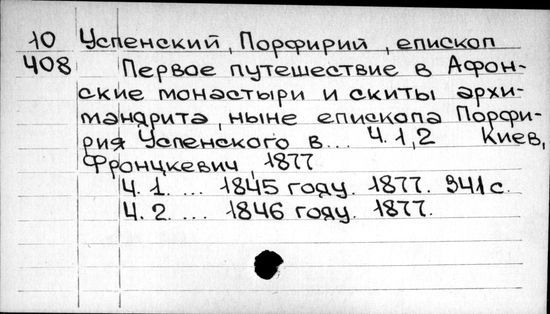 10 Успенский, Порфирий, епископ
408 Первое путешествие в Афон-
ские монастыри и скиты архи-
мандрита, ныне епископа Порфи-
рия Успенского в... Ч. 1, 2 Киев,
Фронцкевич, 1877
Ч. 1. ... 1845 году. 1877. 341 с.
Ч. 2. ... 1846 году. 1877.